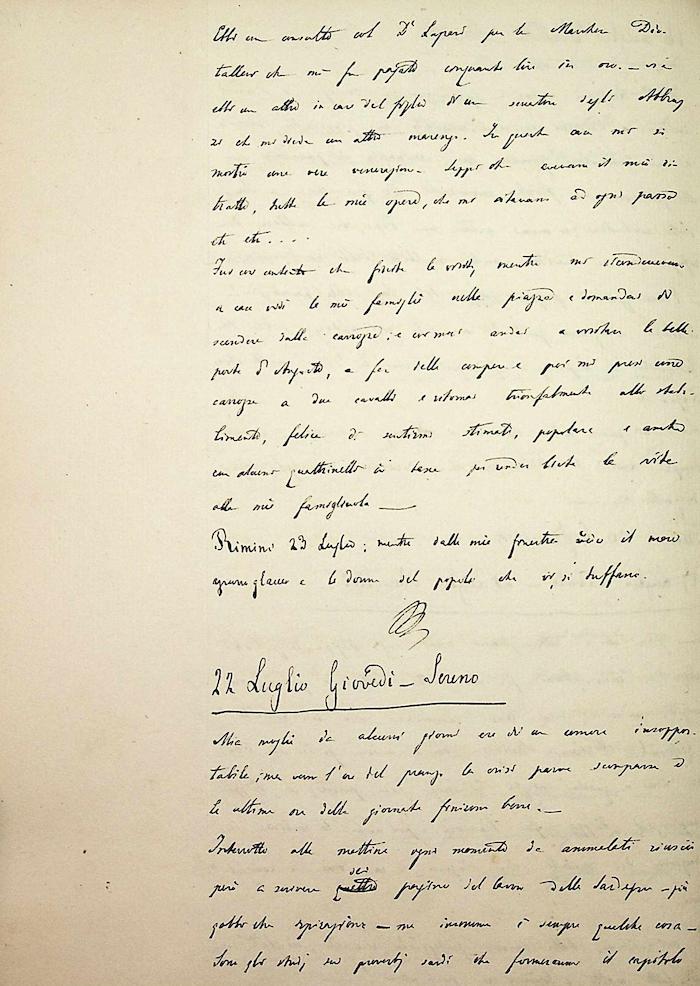 Ebbi un consulto col Dr Laperi per la Marchesa Dio-
tallevi che mi fu pagato cinquanta lire in oro. – vi è
ebbi un altro in casa del figlio di un senatore degli Abbruz
zi che mi diede un altro marengo. In questa casa mi si
mostrò una vera venerazione. Seppi che avevano il mio ri-
tratto, tutte le mie opere, che mi citavano ad ogni passo
etc etc. . . .
Fui così contento che finite le visite, mentre mi riconducevano
a casa vidi la mia famiglia nella piazza e domandai di
scendere dalla carrozza; e con mia andai a visitare la bella
porta d'Augusto, a far delle compere e poi mi presi una
carrozza a due cavalli e ritornai trionfalmente allo stabi-
limento, felice di sentirmi stimato, popolare e anche
con alcuni quattrinelli in tasca per render lieta la vita
alla mia famigliuola —
Rimini 23 Luglio; mentre dalla mia finestra vedo il mare
e le donne del popolo che vi si tuffano.
22 Luglio Giovedi – Sereno
Mia moglie da alcuni giorni era di un umore insoppor-
tabile; ma verso l'ora del pranzo la crisi parve scomparsa e
le ultime ore della giornata finirono bene. —
Interrotto alla mattina ogni momento da ammalati riuscii
però a scrivere sei pagine del lavoro della Sardegna –
che ispirazione – ma insomma è sempre qualche cosa –
Sono gli studj sui proverbj sardi che formeranno il capitolo